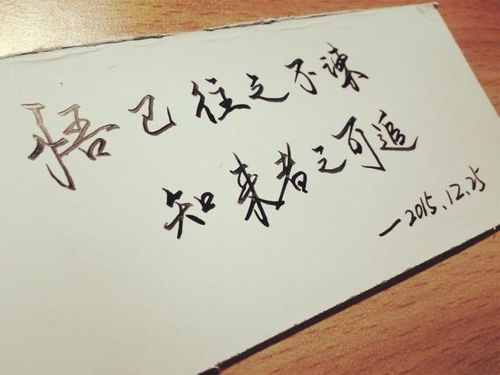 悟已往之不谏
知来者之可追
—2015.12.25